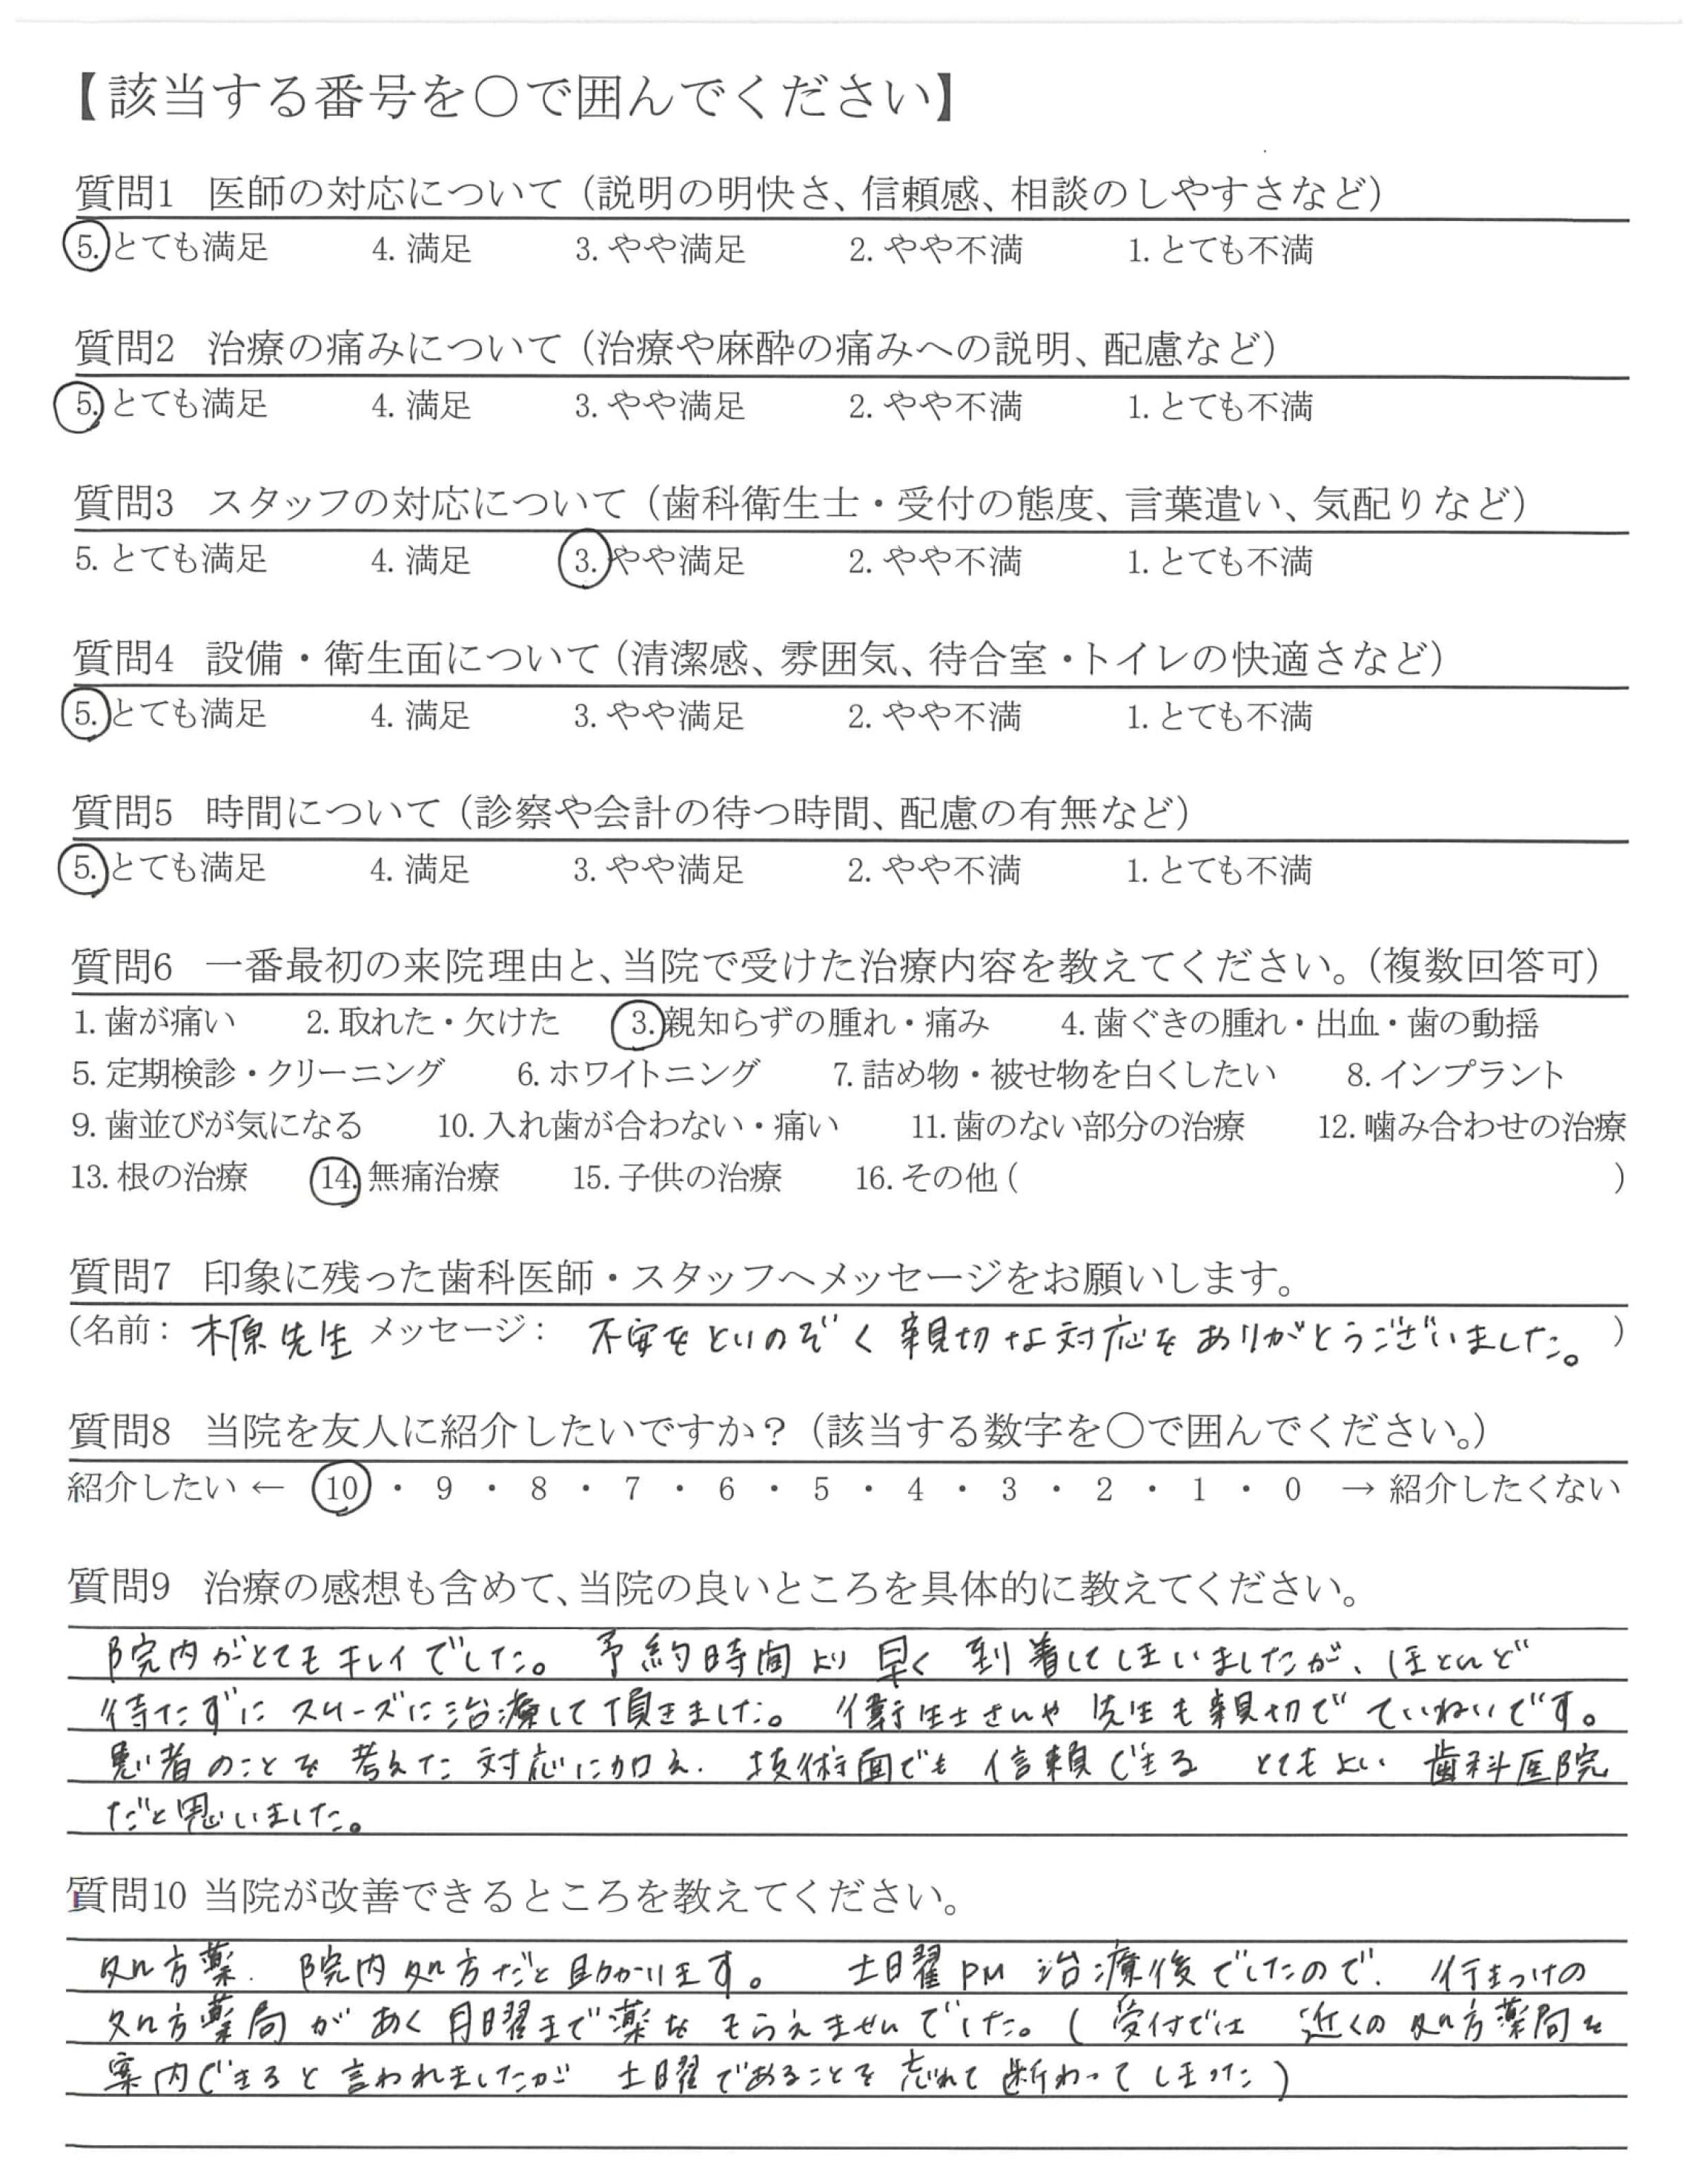 【該当する番号を○で囲んでください】
質問1 医師の対応について（説明の明快さ、信頼感、相談のしやすさなど）
5. とても満足 4. 満足 3. やや満足 2. やや不満 1. とても不満
質問2 治療の痛みについて（治療や麻酔の痛みへの説明、配慮など）
5. とても満足 4. 満足 3. やや満足 2. やや不満 1. とても不満
質問3 スタッフの対応について（歯科衛生士・受付の態度、言葉遣い、気配りなど）
5. とても満足 4. 満足 3. やや満足 2. やや不満 1. とても不満
質問4 設備・衛生面について（清潔感、雰囲気、待合室・トイレの快適さなど）
5. とても満足 4. 満足 3. やや満足 2. やや不満 1. とても不満
質問5 時間について（診察や会計の待つ時間、配慮の有無など）
5. とても満足 4. 満足 3. やや満足 2. やや不満 1. とても不満
質問6 一番最初の来院理由と、当院で受けた治療内容を教えてください。（複数回答可）
1. 歯が痛い 2. 取れた・欠けた 3. 親知らずの腫れ・痛み 4. 歯ぐきの腫れ・出血・歯の動揺
5. 定期検診・クリーニング 6. ホワイトニング 7. 詰め物・被せ物を白くしたい 8. インプラント
9. 歯並びが気になる 10. 入れ歯が合わない・痛い 11. 歯のない部分の治療 12. 噛み合わせの治療
13. 根の治療 14. 無痛治療 15. 子供の治療 16. その他 ( )
質問7 印象に残った歯科医師・スタッフへメッセージをお願いします。
(名前： 木原先生 メッセージ： 不安をとりのぞく 親切な対応を ありがとうございました。 )
質問8 当院を友人に紹介したいですか？（該当する数字を○で囲んでください。）
紹介したい ← 10 ・ 9 ・ 8 ・ 7 ・ 6 ・ 5 ・ 4 ・ 3 ・ 2 ・ 1 ・ 0 → 紹介したくない
質問9 治療の感想も含めて、当院の良いところを具体的に教えてください。
院内がとてもキレイでした。 予約時間より 早く 到着してしまいましたが、ほとんど
待たずに スムーズに治療して頂きました。 衛生士さんや 先生も親切で ていねいです。
患者のことを 考えた 対応に加え、技術面でも 信頼できる とてもよい 歯科医院
だと思いました。
質問10 当院が改善できるところを教えてください。
処方薬、 院内処方だと助かります。 土曜PM 治療後でしたので、 行きつけの
処方薬局が あく月曜まで薬を もらえませんでした。( 受付では 近くの処方薬局を
案内できると言われましたが 土曜であることを 忘れて断わってしまった )